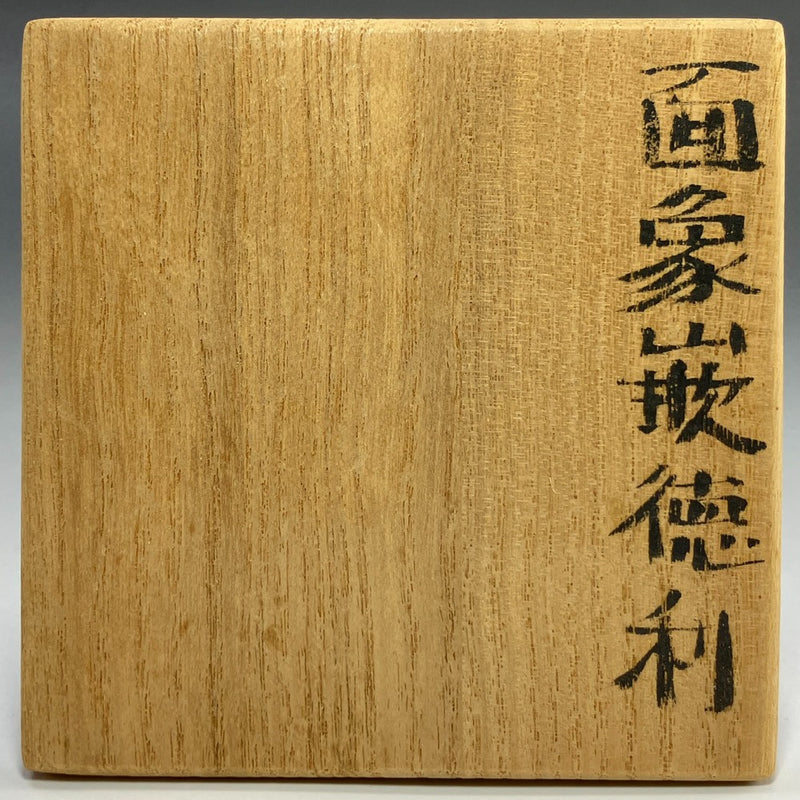 面象嵌徳利